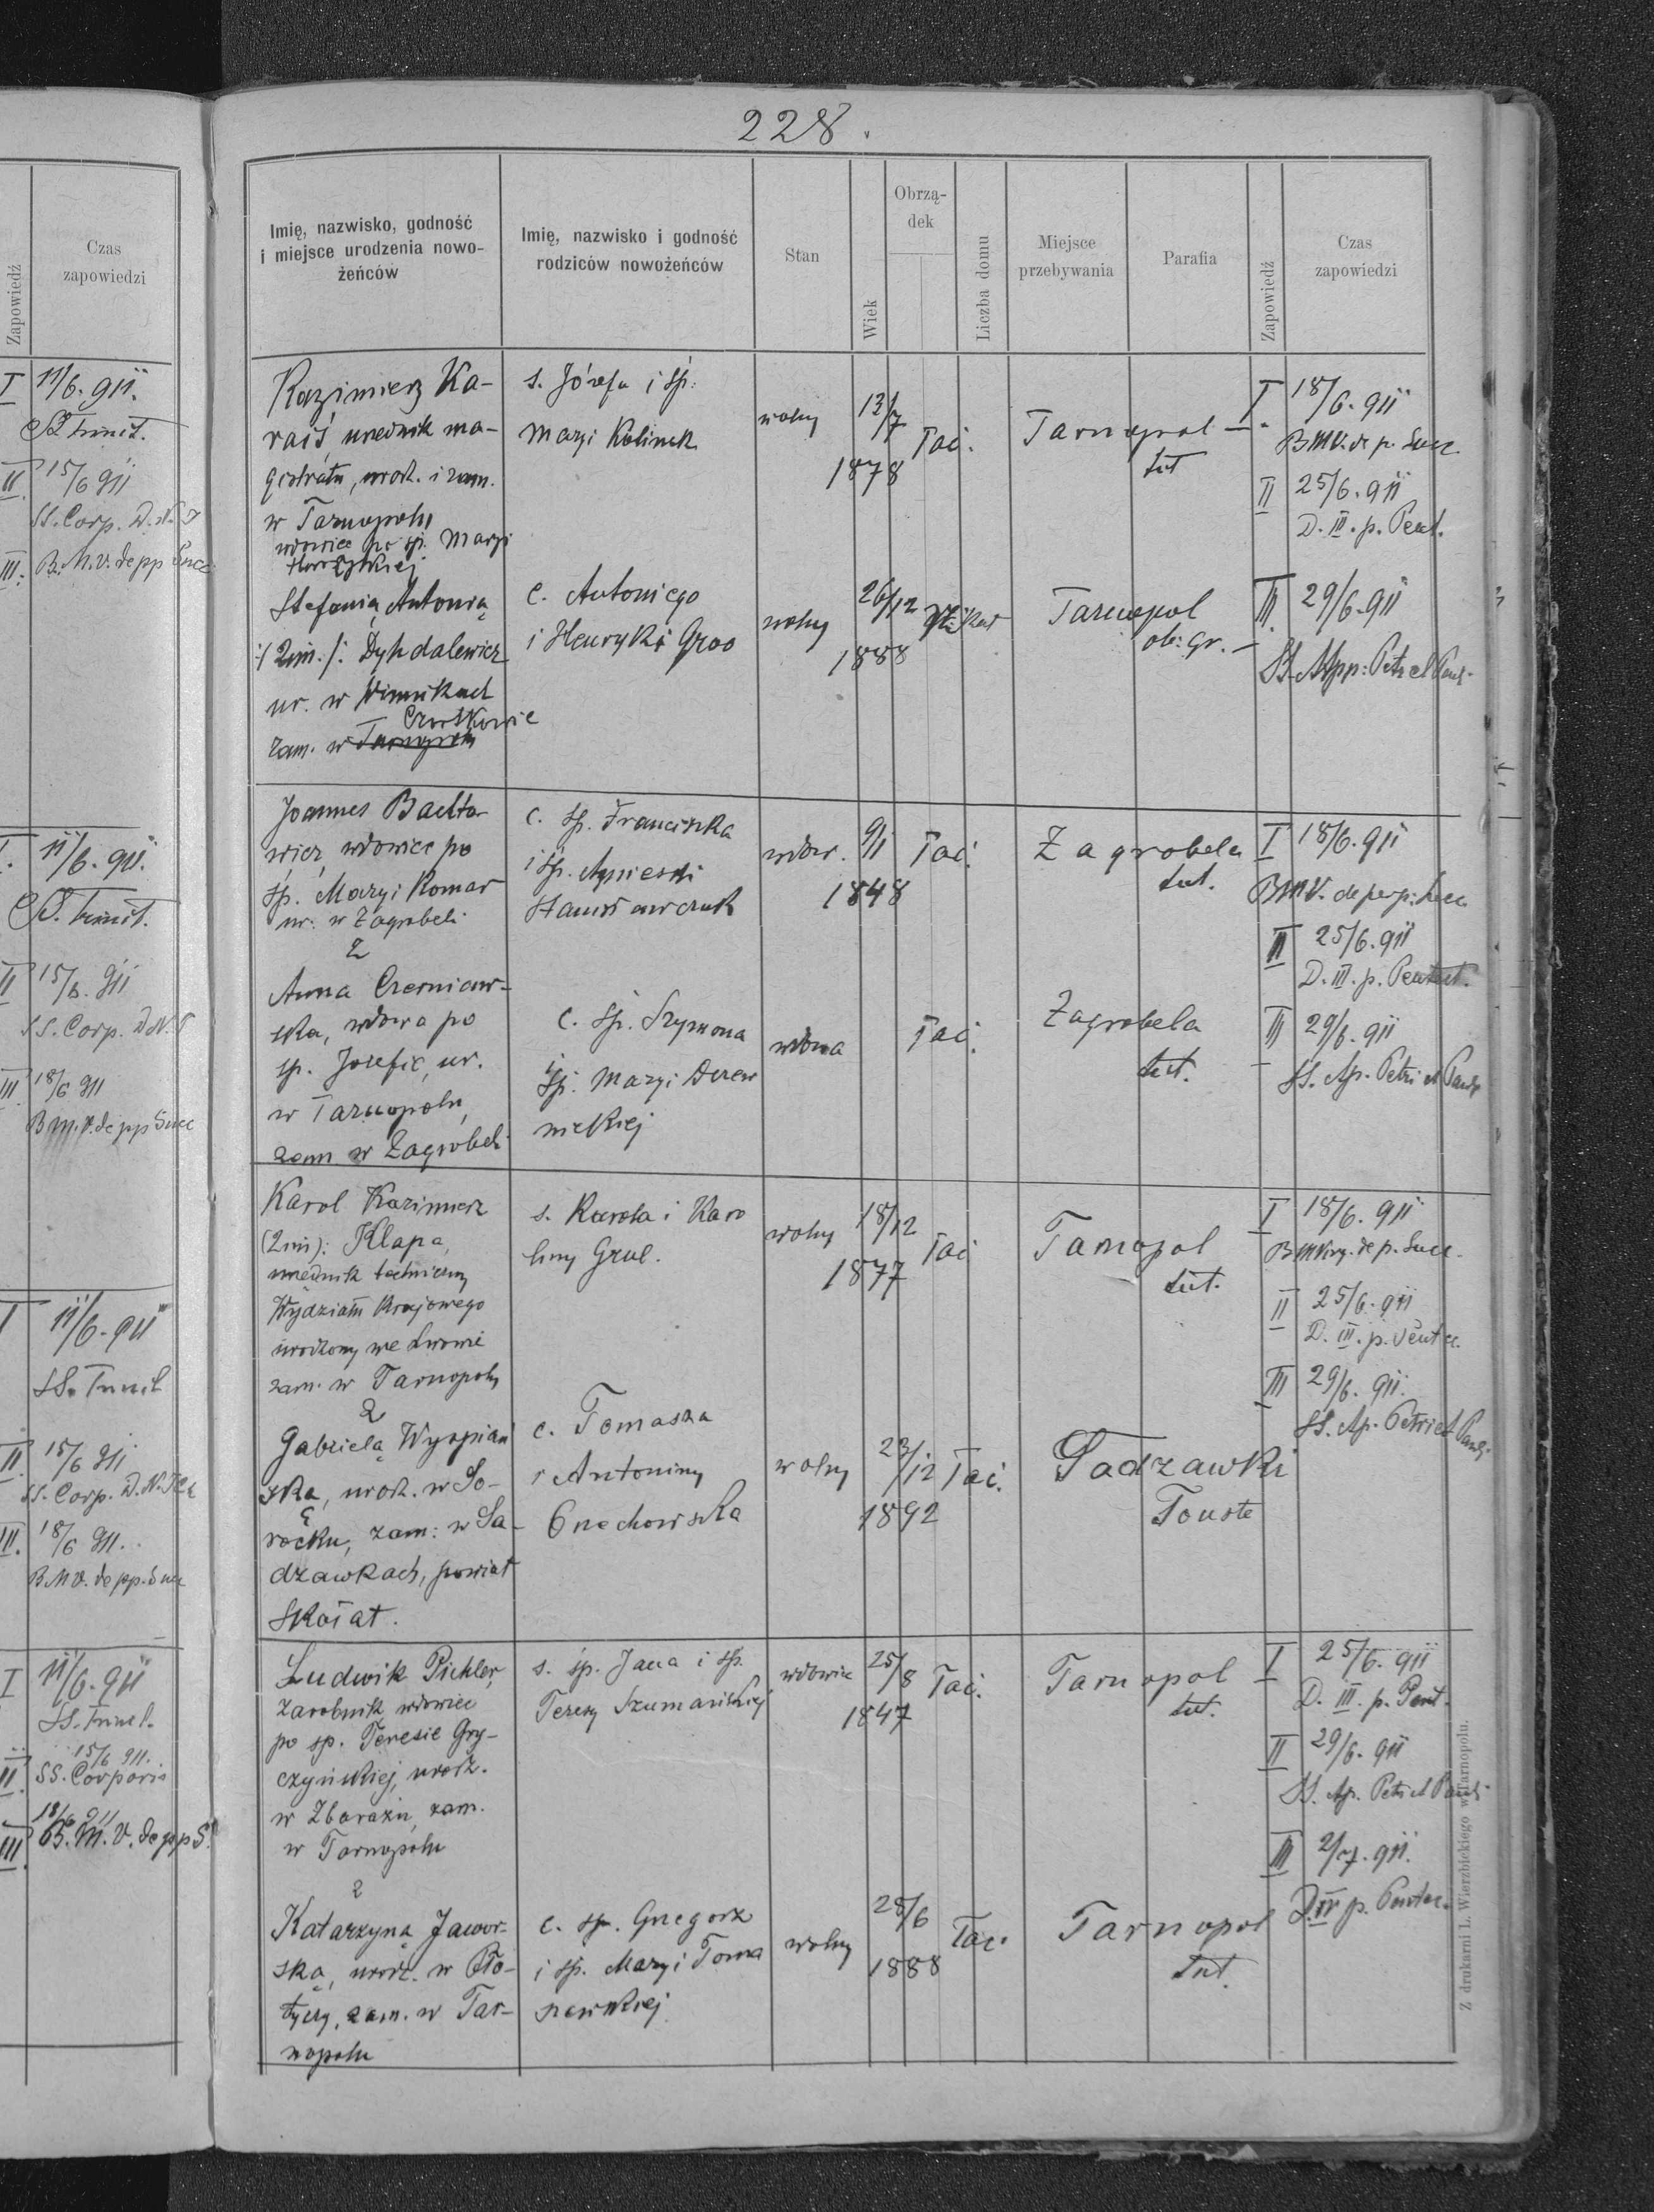 Zapowiedź
Czas
zapowiedzi
I 11/6. 911.
SS Trinit.
II 15/6 911
SS. Corp. D. N. J
III. B. M. V. de pp Succ
11/6. 911.
SS. Trinit.
II 15/6. 911
SS. Corp. D N. J
III 18/6 911
B M. V. de pp Succ
I 11/6. 911
SS. Trinit
II 15/6 911
SS. Corp. D. N.
III. 18/6 911.
B. M V. de pp. Succ
I 11/6. 911
SS. Trinit.
15/6 911.
II. SS. Corporis
18/6 911
III. B. M. V. de pp S.
228.
Imię, nazwisko, godność
i miejsce urodzenia nowo-
żeńców
Imię, nazwisko i godność
rodziców nowożeńców
Stan
Wiek
Obrzą-
dek
Liczba domu
Miejsce
przebywania
Parafia
Zapowiedź
Czas
zapowiedzi
Kazimierz Ka-
raś, urzędnik ma-
gistratu, urodz. i zam.
w Tarnopolu
wdowiec po sp. Maryi
s. Józefa i śp.
Maryi Kalinek
wolny
13/7
1878
łać.
Tarnopol
tut
I. 18/6. 911
BMV. de p. Succ
II 25/6. 911
D. III. p. Pent.
III. 29/6. 911
SS. App: Petri et Pauli
Stefania Antonia
:/ 2im. /: Dyhdalewicz
ur. w Winnikach
Czortkowie
zam. w Tarnopolu
c. Antoniego
i Henryki Groo
wolny
26/12
1888
Tarnopol
ob: gr.
Joannes Bachta-
wicz, wdowiec po
sp. Maryi Komar
ur. w Zagrobeli
2
c. sp. Franciszka
i sp. Agnieszki
wdow.
9/1
1848
łać.
Zagrobela
tut.
I 18/6. 911
BMV. de perp. Succ
II 25/6. 911
D. III. p. Pentect.
III 29/6. 911
SS. Ap. Petri et Pauli
Anna Czerniaw-
ska, wdowa po
sp. Józefie, ur.
w Tarnopolu,
zam. w Zagrobeli
c. sp. Szymona
i
sp. Maryi Derew
nickiej
wdowa
łać.
Zagrobela
tut.
Karol Kazimierz
(2im): Klapa,
urzędnik techniczny
Wydziału Krajowego
urodzony we Lwowie
zam. w Tarnopolu
2
s. Karola i Karo
liny Grul.
wolny
18/12
1877
łać
Tarnopol
tut.
I 18/6. 911
de p. Succ.
II 25/6. 911
D. III. p. Pentec.
III 29/6. 911.
SS. Ap. Petri et Pauli
Gabriela Wyspiań
ska, urodz. w So-
rocku, zam: w Sa-
dzawkach, powiat
Skałat.
c. Tomasza
i Antoniny
Orzechowska
wolny
23/12
1892
łać.
Sadzawki
Touste
Ludwik Pichler,
zarobnik wdowiec
po sp. Teresie Gry-
czyńskiej, urodz.
w Zbarażu, zam.
w Tarnopolu
2
s. śp. Jana i śp.
Teresy Szumańskiej
wdowiec
25/8
1847
łać.
Tarnopol
tut.
I 25/6. 911
D. III. p. Pent.
II 29/6. 911
SS. Ap. Petri et Pauli
III 2/7. 911.
D. IV p. Pentec.
Katarzyna Jawor-
ska, urodz. w Pło-
tyczy, zam. w Tar-
nopolu
c. sp. Grzegorz
i sp. Maryi Toma
szewskiej
wolny
28/6
1888
łać.
Tarnopol
tut.
Z drukarni L. Wierzbickiego w Tarnopolu.